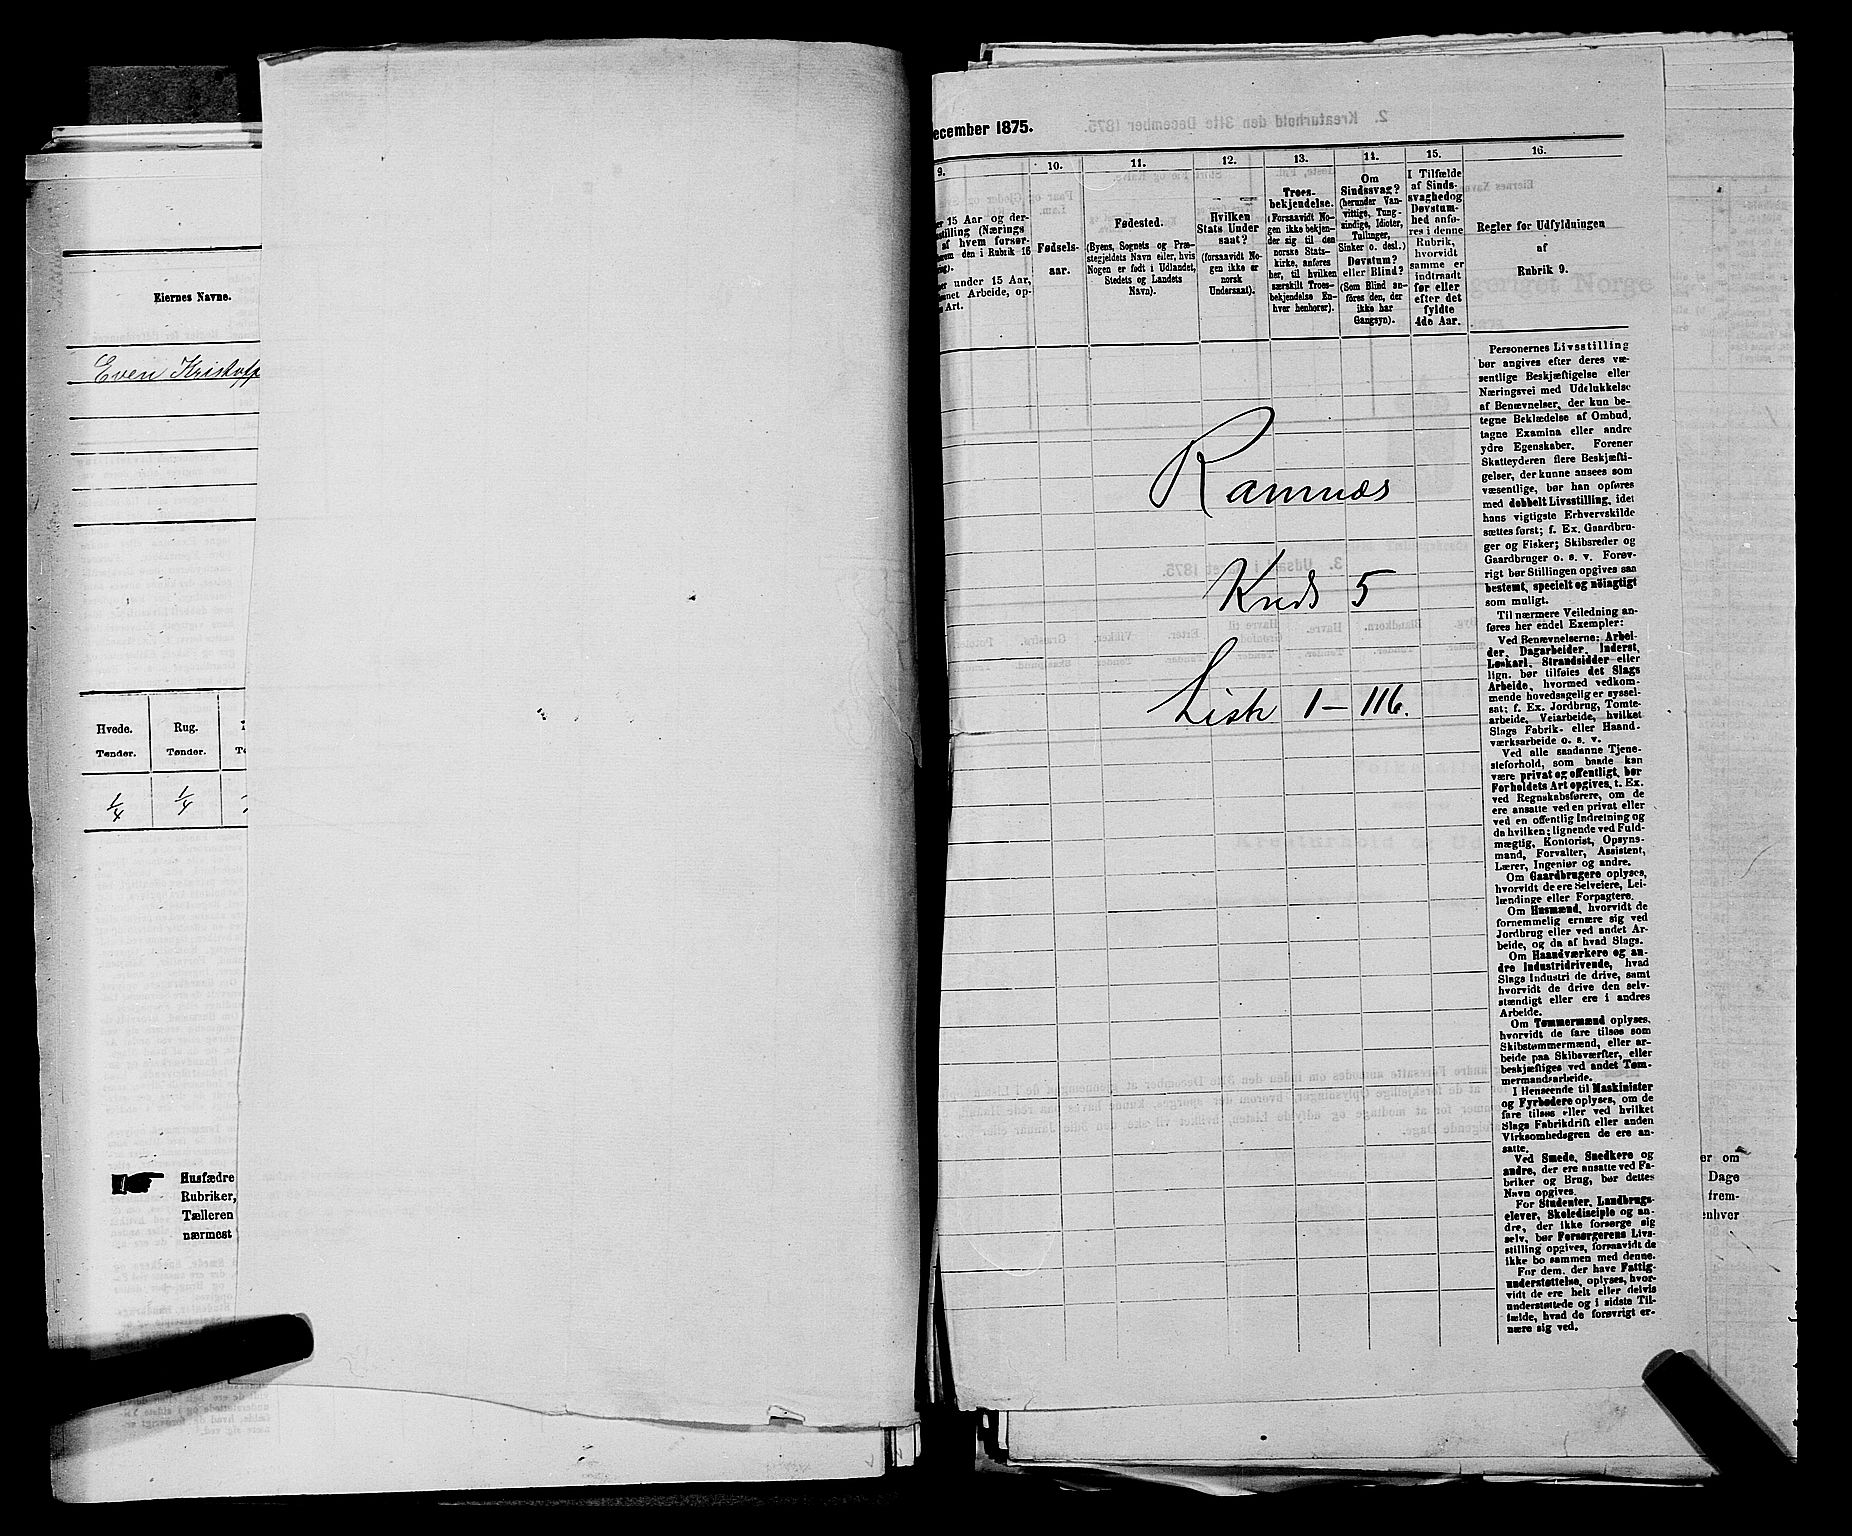 Eiernes Navne.
Even Kristoff
Hvede. Rug.
Tønder. Tønder.
1/4 1/4
Husfædre
Rubriker,
Tælleren
nærmest
ecember 1875.
9. 10. 11. 12. 13. 14. 15. 16.
15 Aar og der-
stilling (Nærings
af hvem forsør-
den i Rubrik 16
under 15 Aar,
Arbeide, op-
Art.
Fødsels-
aar.
Fødested.
(Byens, Sognets og Præ-
stegjeldets Navn eller, hvis
Nogen er født i Udlandet,
Stedets og Landets
Navn).
Hvilken
Stats Under
saat?
(forsaavidt No-
gen ikke er
norsk
Undersaat).
Troes-
bekjendelse.
(Forsaavidt No-
gen ikke bekjen-
der sig til den
norske Stats-
kirke, anføres
her, til hvilken
særskilt Troes-
bekjendelse En-
hver henhører).
Om
Sindssvag?
(herunder Van-
vittige, Tung-
sindige, Idioter,
Tullinger,
Sinker o. desl.)
Døvstum?
eller Blind?
(Som Blind an-
føres den, der
ikke har
Gangsyn).
I Tilfælde
af Sinds-
svaghed og
Døvstum-
hed anfø-
res i denne
Rubrik,
hvorvidt
samme er
indtraadt
før eller
efter det
fyldte
4de Aar.
Regler for Udfyldningen
af
Rubrik 9.
Ramnæs
Kreds 5
Liste 1-116.
Personernes Livsstilling
bør angives efter deres væ-
sentlige Beskjæftigelse eller
Næringsvei med Udelukkelse
af Benævnelser, der kun be-
tegne Beklædelse af Ombud,
tagne Examina eller andre
ydre Egenskaber. Forener
Skatteyderen flere Beskjæfti-
gelser, der kunne ansees som
væsentlige, bør han opføres
med dobbelt Livsstilling, idet
hans vigtigste Erhvervskilde
sættes først; f. Ex. Gaardbru-
ger og Fisker; Skibsreder og
Gaardbruger o. s. v. Forøv-
rigt bør Stillingen opgives saa
bestemt, specielt og nøiagtigt
som muligt.
Til nærmere Veiledning an-
føres her endel Exempler:
Ved Benævnelserne: Arbei-
der, Dagarbeider, Inderst,
Løskarl, Strandsidder eller
lign. bør tilføies det Slags
Arbeide, hvormed vedkom-
mende hovedsagelig er syssel-
sat; f. Ex. Jordbrug, Tomte-
arbeide, Veiarbeide, hvilket
Slags Fabrik- eller Haand-
værksarbeide o. s. v.
Ved alle saadanne Tjene-
steforhold, som baade kan
være privat og offentligt, bør
Forholdets Art opgives, t. Ex.
ved Regnskabsførere, om de
ere ansatte ved en privat eller
ved en offentlig Indretning og
da hvilken; lignende ved Fuld-
mægtig, Kontorist, Opsyns-
mand, Forvalter, Assistent,
Lærer, Ingeniør og andre.
Om Gaardbrugere oplyses,
hvorvidt de ere Selveiere, Lei-
lændinge eller Forpagtere.
Om Husmænd, hvorvidt de
fornemmelig ernære sig ved
Jordbrug eller ved andet Ar-
beide, og da af hvad Slags.
Om Haandværkere og an-
dre Industridrivende, hvad
Slags Industri de drive, samt
hvorvidt de drive den selv-
stændigt eller ere i andres
Arbeide.
Om Tømmermænd oplyses,
hvorvidt de fare tilsøs som
Skibstømmermænd, eller ar-
beide paa Skibsværfter, eller
beskjæftiges ved andet Tøm-
mermandsarbeide.
I Henseende til Maskinister
og Fyrbødere oplyses, om de
fare tilsøs eller ved hvilket
Slags Fabrikdrift eller anden
Virksomhedsgren de ere an-
satte.
Ved Smede, Snedkere og
andre, der ere ansatte ved Fa-
briker og Brug, bør dettes
Navn opgives.
For Studenter, Landbrugs-
elever, Skoledisciple og an-
dre, der ikke forsørge sig
selv, bør Forsørgerens Livs-
stilling opgives, forsaavidt de
ikke bo sammen med denne.
For dem, der have Fattig-
understøttelse, oplyses, hvor-
vidt de ere helt eller delvis
understøttede og i sidste Til-
fælde, hvad de forøvrigt er-
nære sig ved.
er om
Dage
frem-
enhver